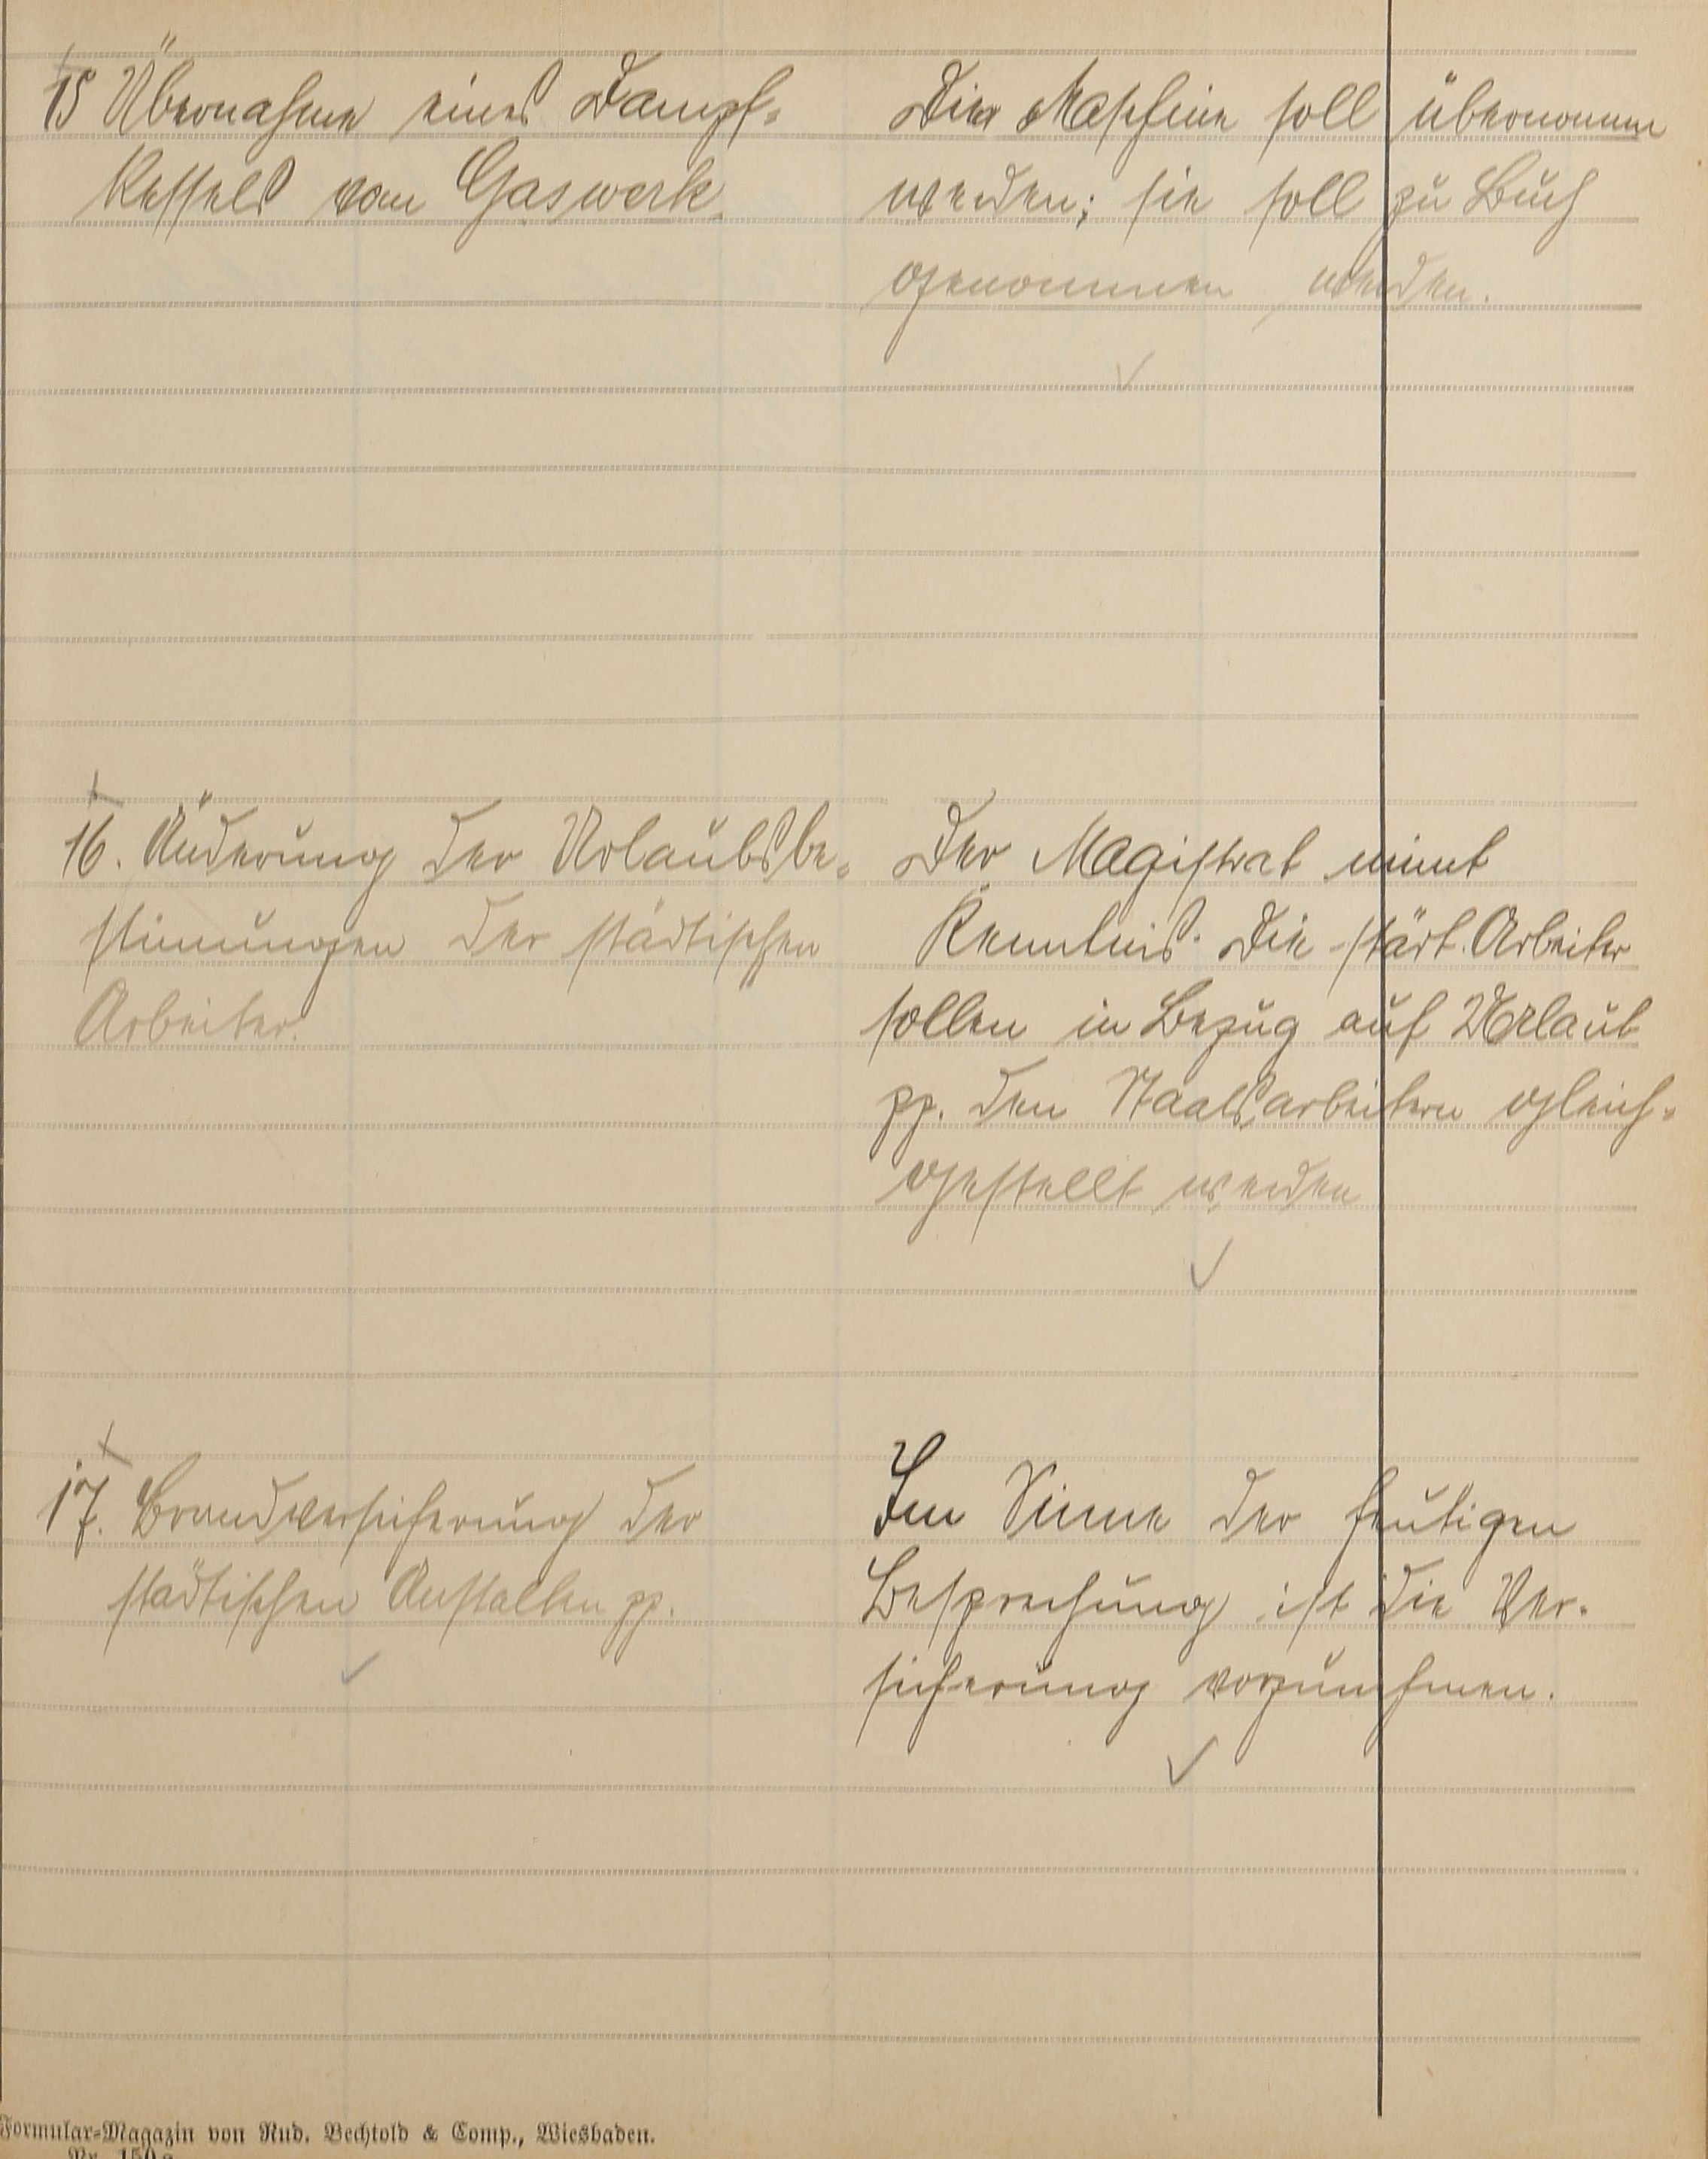 15 Übernahme eines Dampf-
Kessels vom Gaswerk.
Die Maschine soll übernommen
werden; sie soll zu Buch
genommen werden.
16. Änderung der Urlaubsbe-
stimmungen der städtischen
Arbeiter.
Der Magistrat nimmt
Kenntnis. Die städt. Arbeiter
sollen in Bezug auf Urlaub
pp. den Staatsarbeitern gleich-
gestellt werden
17. Brandversicherung der
städtischen Anstalten pp.
Im Sinne der heutigen
Besprechung ist die Ver-
sicherung vorzunehmen.
Formular-Magazin von Rud. Bechtold & Comp., Wiesbaden.
Nr. 150a